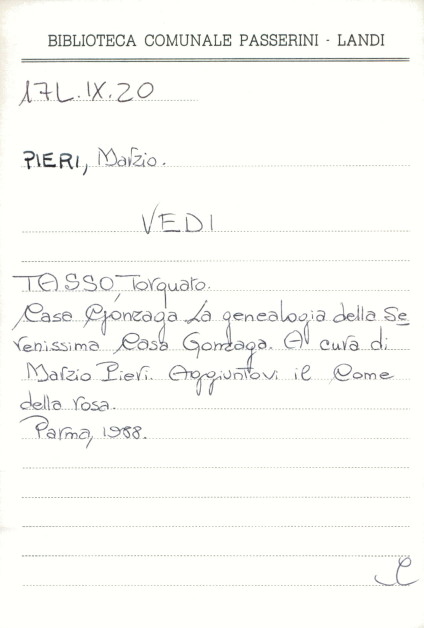 BIBLIOTECA COMUNALE PASSERINI - LANDI
17L.IX.20
PIERI, Marzio.
VEDI
TASSO, Torquato.
Casa Gonzaga La genealogia della Se
renissima Casa Gonzaga. A cura di
Marzio Pieri. Aggiuntovi il Come
della rosa.
Parma, 1988.